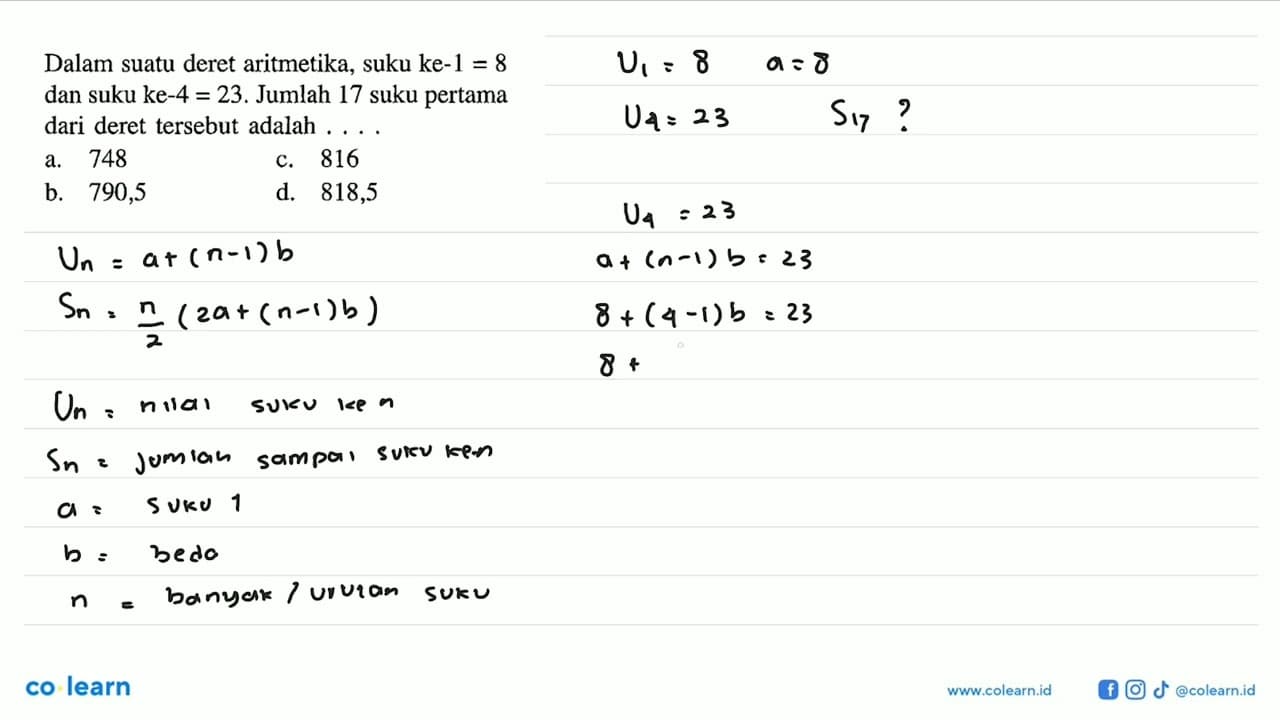 Dalam suatu deret aritmetika, suku ke-1 = 8
dan suku ke-4 = 23. Jumlah 17 suku pertama
dari deret tersebut adalah . . . .
a. 748 c. 816
b. 790,5 d. 818,5
Un = a + (n-1) b
Sn = n/2 (2a + (n-1) b)
Un = nilai suku ke n
Sn = jumlah sampai suku ke-n
a = suku 1
b = beda
n = banyak / urutan suku
U1 = 8 a = 8
U4 = 23 S17 ?
U4 = 23
a + (n-1) b = 23
8 + (4-1) b = 23
8 +
co learn
www.colearn.id @colearn.id